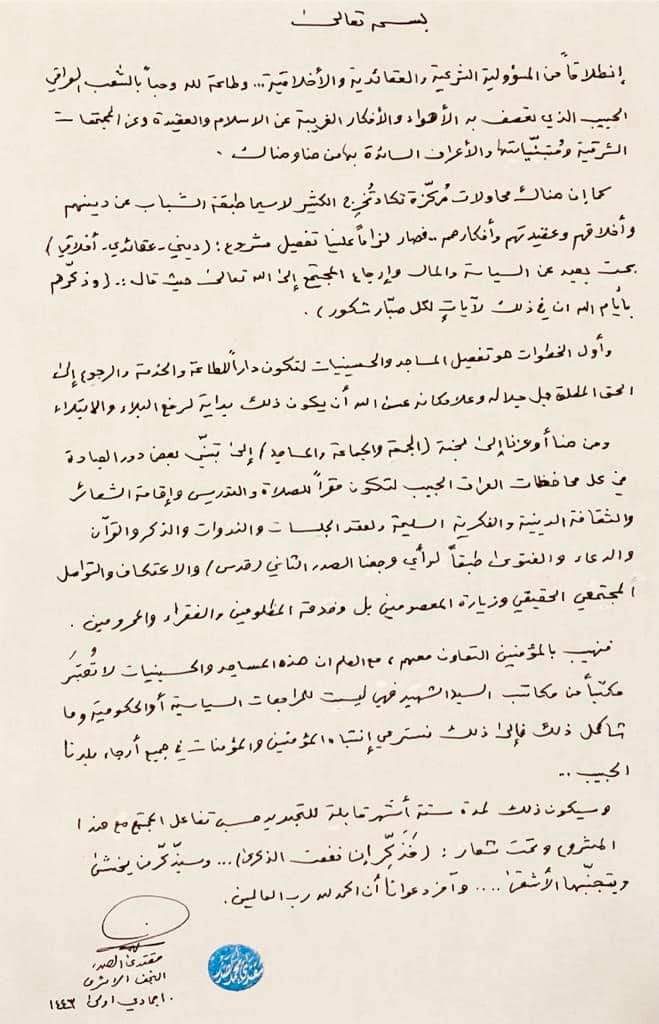 بسمه تعالى
إنطلاقاً من المسؤولية الشرعية والعقائدية والأخلاقية... وطاعة لله وحباً بالشعب العراقي
الحبيب الذي تعصف به الأهواء والأفكار الغريبة عن الاسلام والعقيدة وعن المجتمعات
الشرقية ومُتبنّياتها والأعراف السائدة بها من هنا وهناك .
كما إن هناك محاولات مُركّزة تكاد تُخرج الكثير لاسيما طبقة الشباب عن دينهم
وأخلاقهم وعقيدتهم وأفكارهم .. فصار لزاماً علينا تفعيل مشروع : (ديني - عقائدي - أخلاقي)
بحت بعيد عن السياسة والمال وإرجاع المجتمع إلى الله تعالى حيث قال : (وذكّرهم
بأيام الله ان في ذلك لآياتٍ لكل صبّار شكور) .
وأول الخطوات هو تفعيل المساجد والحسينيات لتكون داراً للطاعة والخدمة والرجوع إلى
الحق المطلق جل جلاله وعلا مكانه عسى الله أن يكون ذلك بداية لرفع البلاء والابتلاء
ومن هنا أوعزنا إلى لجنة (الجمعة والجماعة والمساجد) إلى تبنّي بعض دور العبادة
في كل محافظات العراق الحبيب لتكون مقراً للصلاة والتدريس وإقامة الشعائر
والثقافة الدينية والفكرية السليمة ولعقد الجلسات والندوات والذكر والقرآن
والدعاء والفتوى طبقاً لرأي مرجعنا الصدر الثاني (قدس) والاعتكاف والتواصل
المجتمعي الحقيقي وزيارة المعصومين بل وخدمة المظلومين والفقراء والمحرومين .
فنهيب بالمؤمنين التعاون معهم ، مع العلم ان هذه المساجد والحسينيات لا تُعتبَر
مكتباً من مكاتب السيد الشهيد فهي ليست للمراجعات السياسية أو الحكومية وما
شاكل ذلك فإلى ذلك نسترعي إنتباه المؤمنين والمؤمنات في جميع أرجاء بلدنا
الحبيب ..
وسيكون ذلك لمدة ستة أشهر قابلة للتجديد حسب تفاعل المجتمع مع هذا
المشروع وتحت شعار : (فَذَكِّر إن نفعت الذكرى) ... وسيذّكّر من يخشى
ويتجنّبها الأشقى .... وآخر دعوانا أن الحمد لله رب العالمين .
مقتدى الصدر
النجف الاشرف
١٠ جمادي اولى ١٤٤٦
مقتدى محمد الصدر